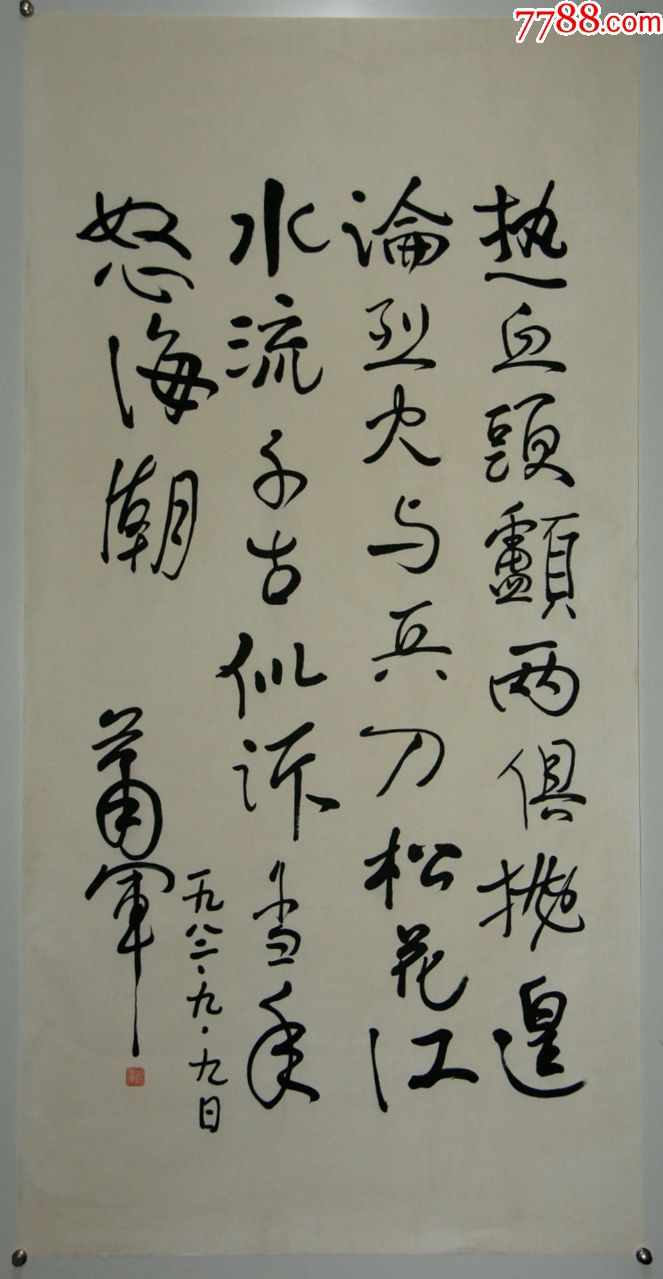 7788.com
热血頭顱兩俱抛遑
論烈火与兵刀松花江
水流千古似诉当年
怒海潮
蕭軍
一九八二·九·九日